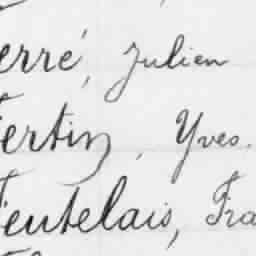 erré, Julien
Fertin, Yves.
Feutelais, Fra